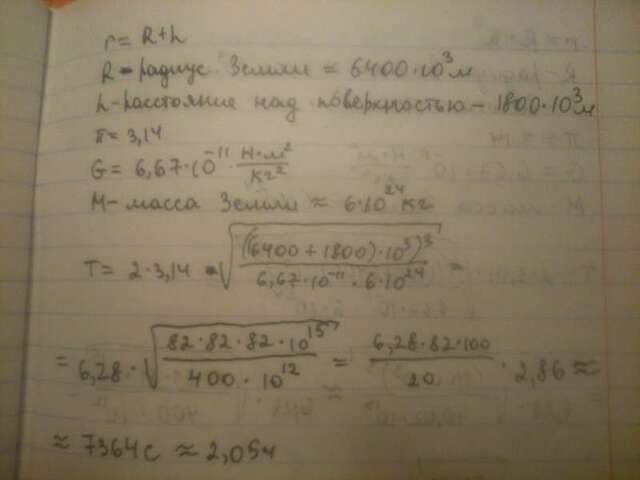 r = R+h
R - радиус Земли ≈ 6400·10³м
h - расстояние над поверхностью - 1800·10³м
π = 3,14
G = 6,67·10⁻¹¹ · Н·м²/кг²
M - масса Земли ≈ 6·10²⁴ кг
T = 2·3,14 · √(((6400+1800)·10³)³/(6,67·10⁻¹¹ · 6·10²⁴)) =
= 6,28 · √((82·82·82·10¹⁵)/(400·10¹²)) = (6,28·82·100)/20 · 2,86 ≈
≈ 7364с ≈ 2,05ч